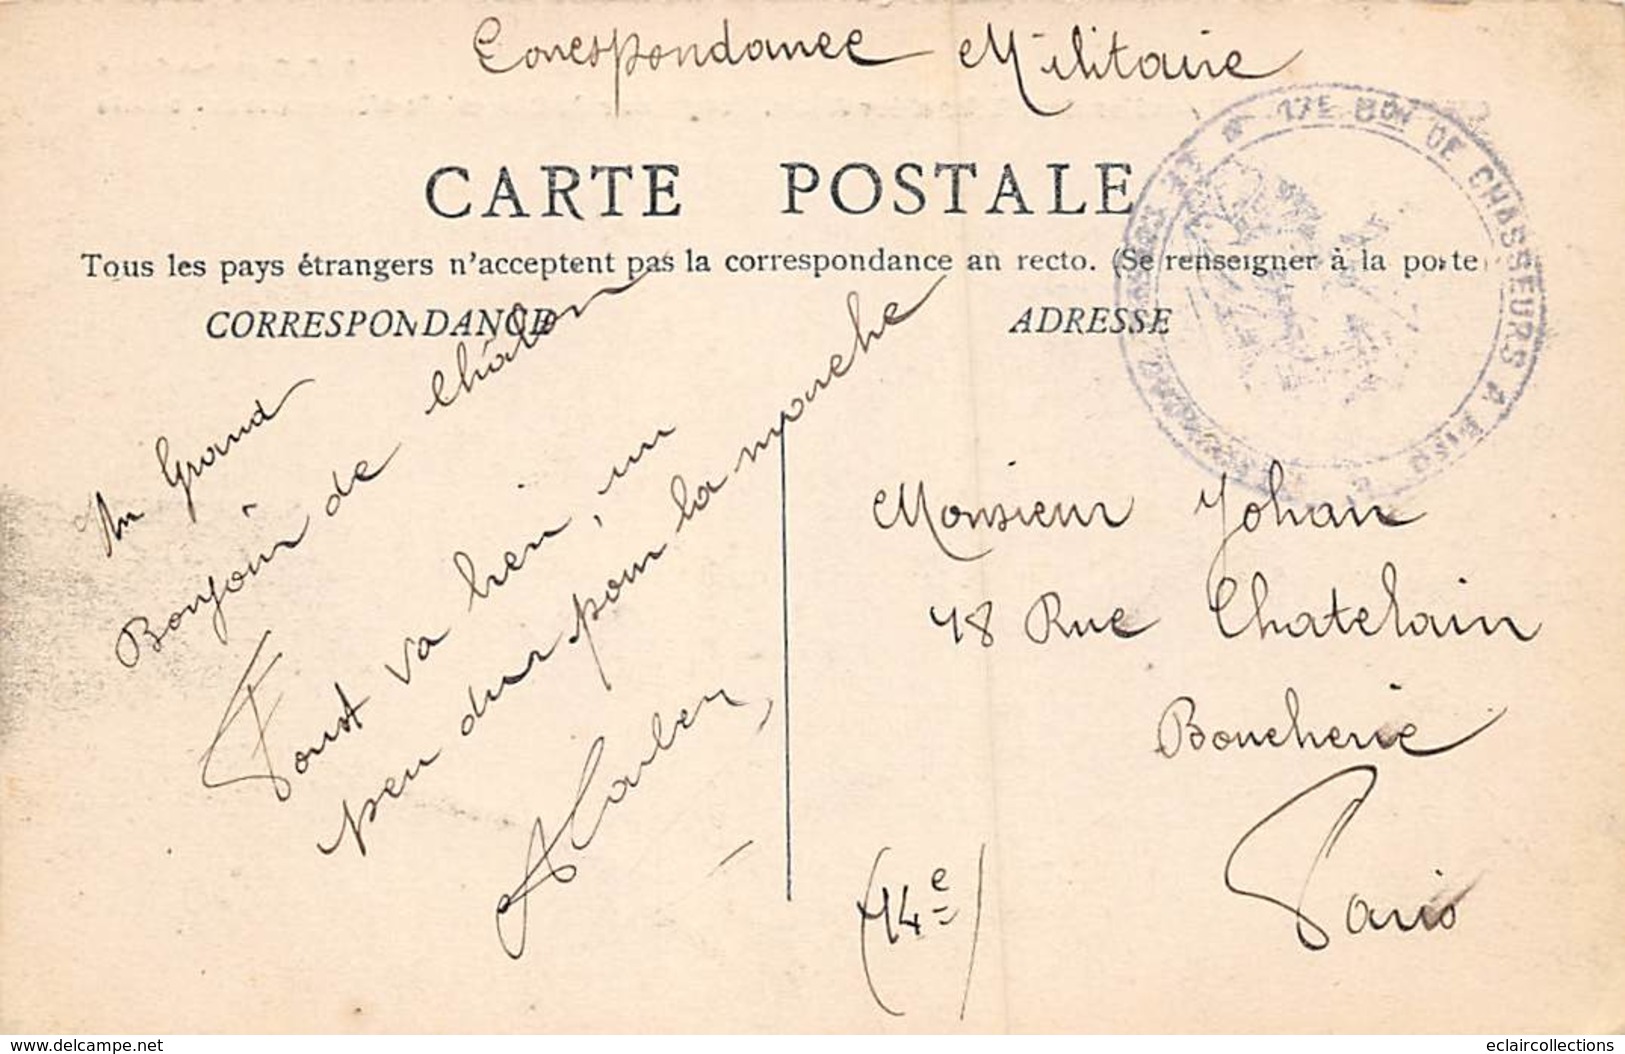 Correspondance Militaire
CARTE POSTALE
Tous les pays étrangers n'acceptent pas la correspondance an recto. (Se renseigner à la poste
CORRESPONDANCE
ADRESSE
17E BON DE CHASSEURS A PIED
Un Grand
Bonjour de Châlons
Tout va bien, un
peu dur pour la marche
Monsieur Johan
48 Rue Chatelain
Boucherie
Paris
(14e)
delcampe.net
eclaircollections